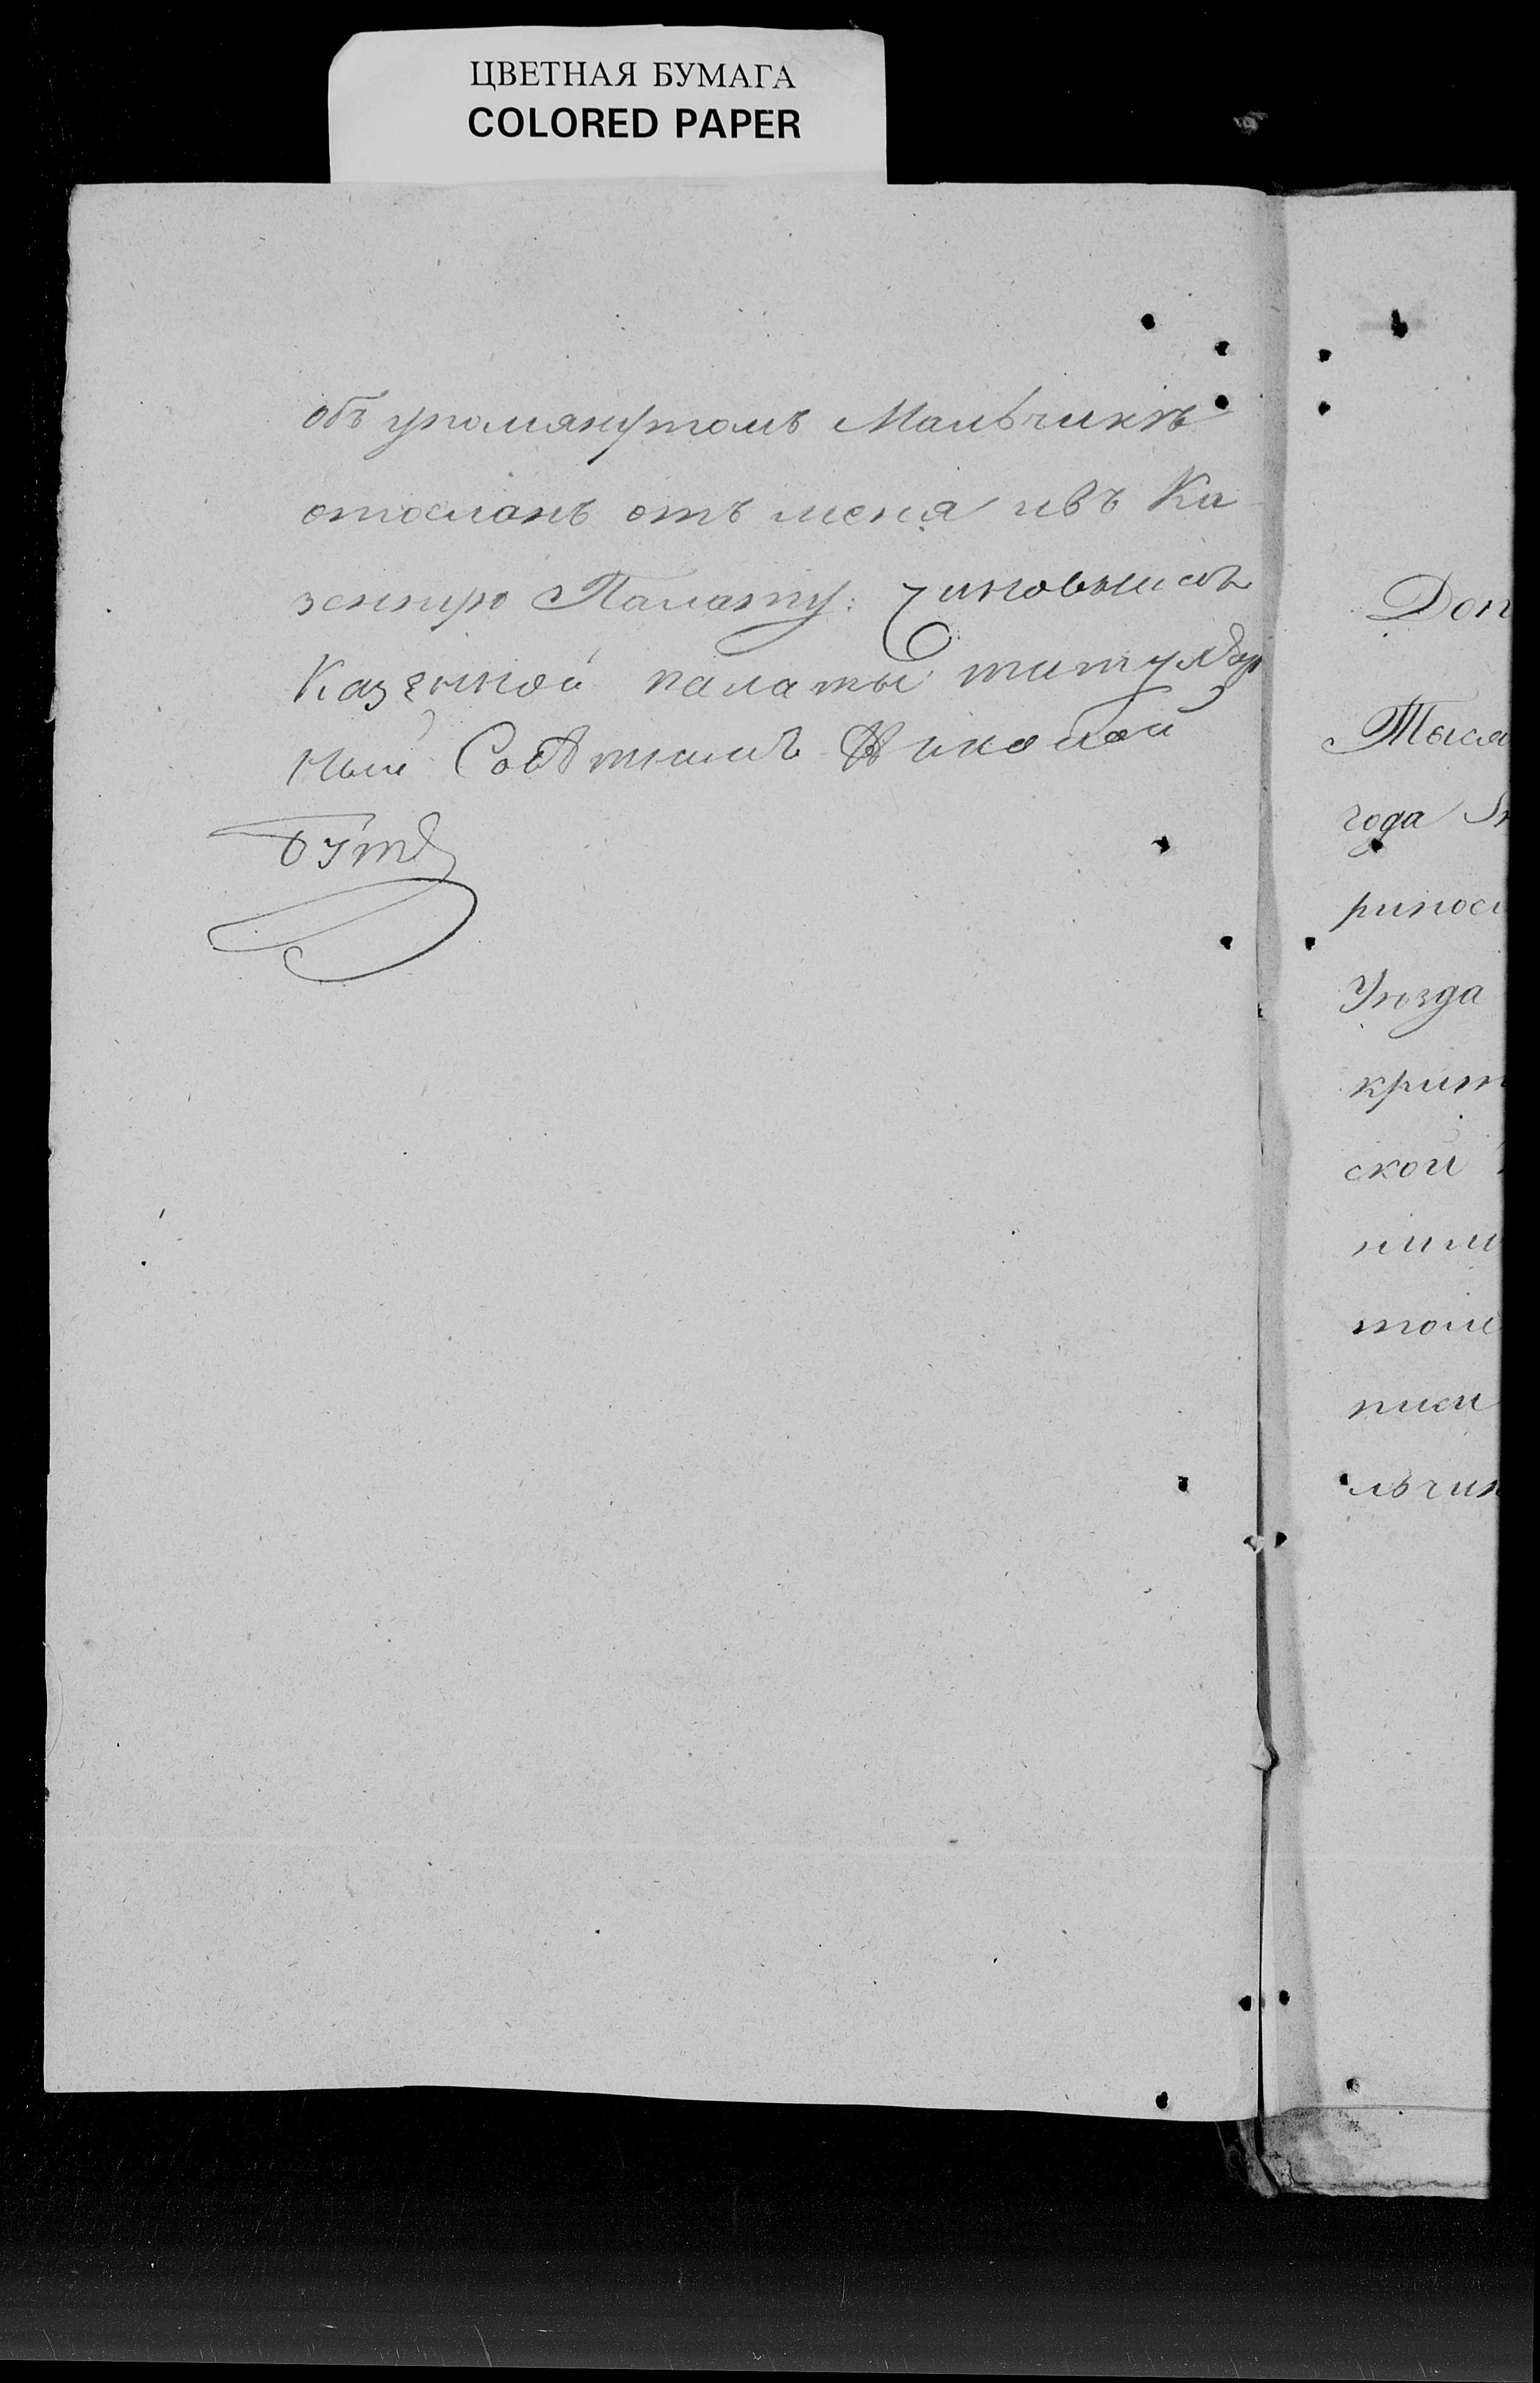 ЦВЕТНАЯ БУМАГА
COLORED PAPER
объ упомянутомъ Мальчикѣ
отосланъ отъ меня ивъ Ка-
зенную Палату: Чиновникъ
Казенной палаты титуляр
ный Совѣтникъ Николай
Доп
Тыся
года
риносл
Уѣзда
крит
ской
ниш
том
писи
льчик